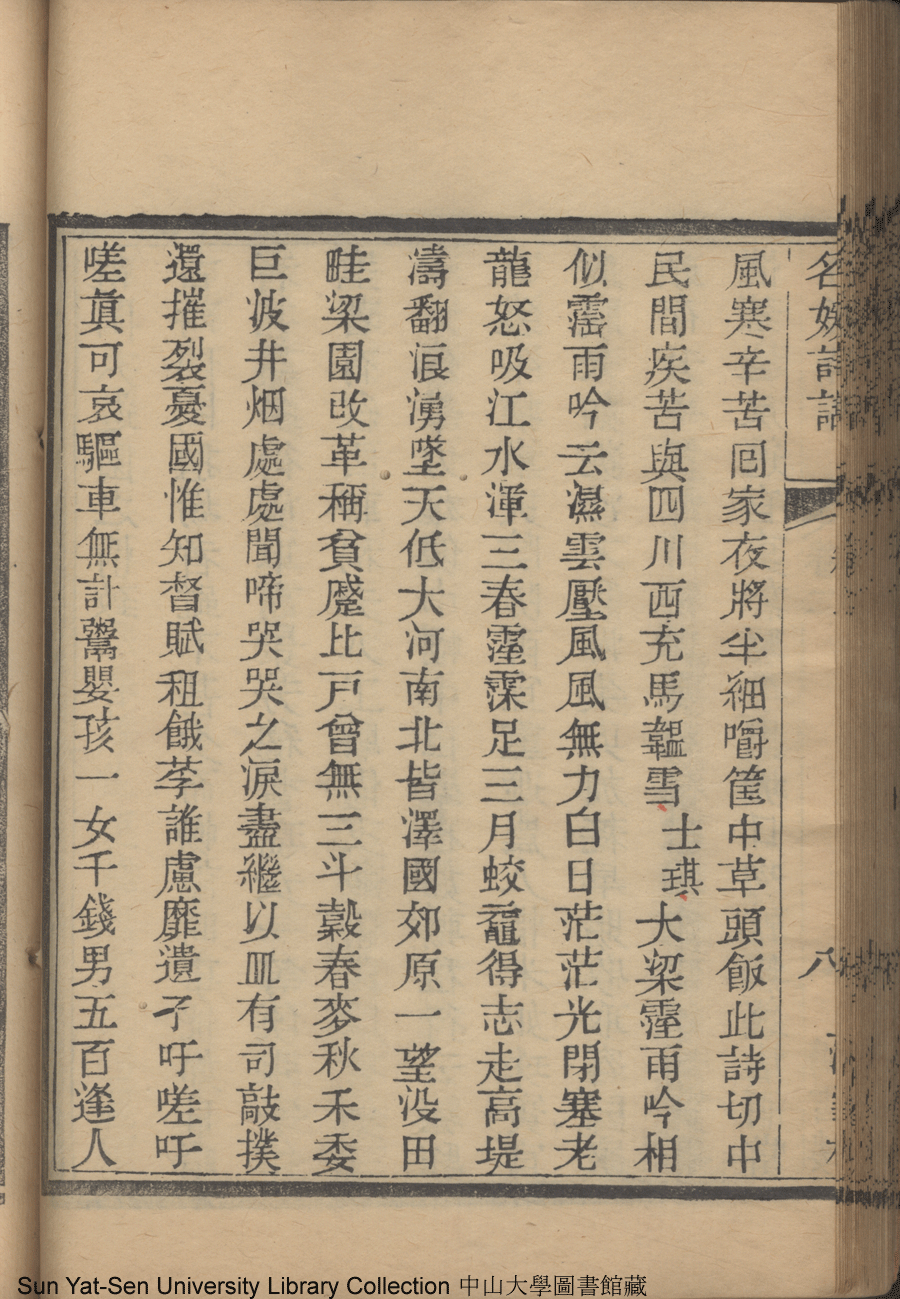 名媛詩話
八
風寒辛苦囘家夜將半細嚼筐中草頭飯此詩切中
民間疾苦與四川西充馬韞雪士琪大梁霪雨吟相
似霪雨吟云濕雲壓風風無力白日茫茫光閉塞老
龍怒吸江水渾三春霪霖足三月蛟龍得志走高堤
濤翻浪湧墜天低大河南北皆澤國郊原一望没田
畦梁園改革稱貧蹙比戸曾無三斗穀春麥秋禾委
巨波井烟處處聞啼哭哭之淚盡繼以血有司敲撲
還摧裂憂國惟知督賦租餓莩誰慮靡遺孑吁嗟吁
嗟眞可哀驅車無計鬻嬰孩一女千錢男五百逢人
Sun Yat-Sen University Library Collection 中山大學圖書館藏